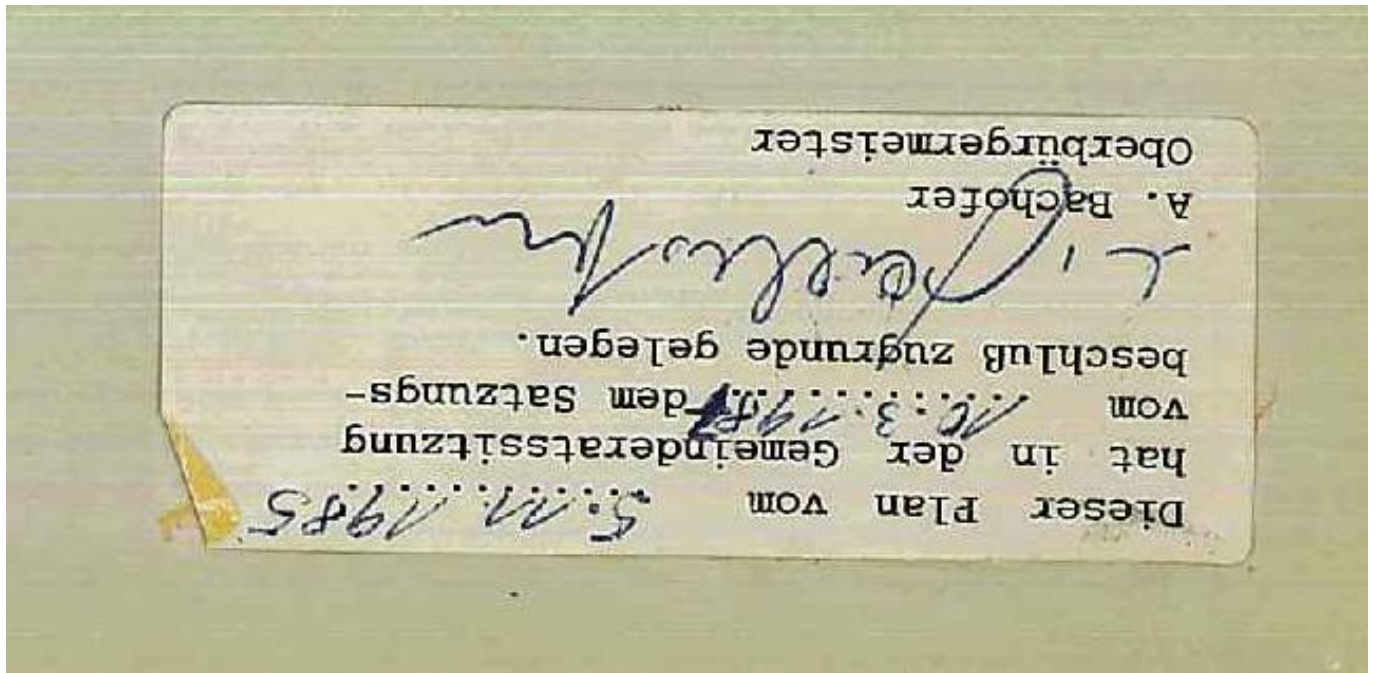 Dieser Plan vom 5.11.1985
hat in der Gemeinderatssitzung
vom 10.3.1987 dem Satzungs-
beschluß zugrunde gelegen.
A. Bachofer
Oberbürgermeister